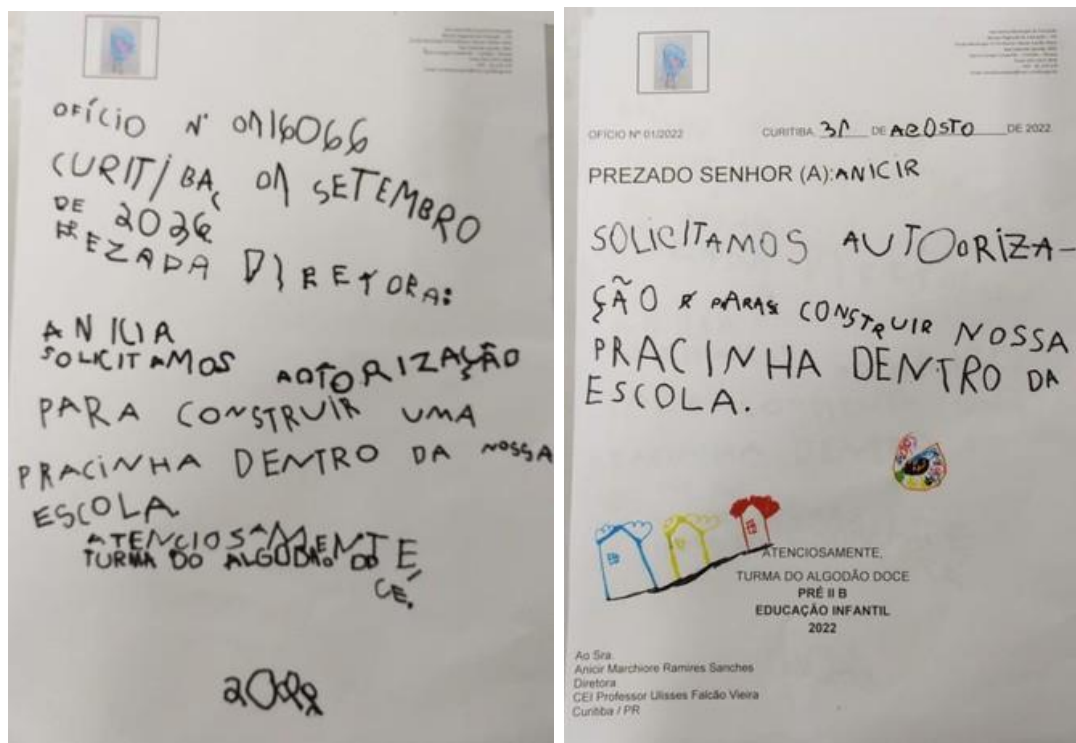 OFÍCIO N° 0116066
CURITIBA, 01 SETEMBRO
DE 2026
PREZADA DIRETORA:
ANICIA
SOLICITAMOS AOTORIZAÇÃO
PARA CONSTRUIR UMA
PRACINHA DENTRO DA NOSSA
ESCOLA
ATENCIOSAMENTE,
TURMA DO ALGODÃO DO
CE.
OFÍCIO Nº 01/2022 CURITIBA, 31 DE AGOSTO DE 2022
PREZADO SENHOR (A): ANICIR
SOLICITAMOS AUTOORIZA-
ÇÃO PARA CONSTRUIR NOSSA
PRACINHA DENTRO DA
ESCOLA.
ATENCIOSAMENTE,
TURMA DO ALGODÃO DOCE
PRÉ II B
EDUCAÇÃO INFANTIL
2022
Ao Sra.
Anicir Marchiore Ramires Sanches
Diretora
CEI Professor Ulisses Falcão Vieira
Curitiba / PR